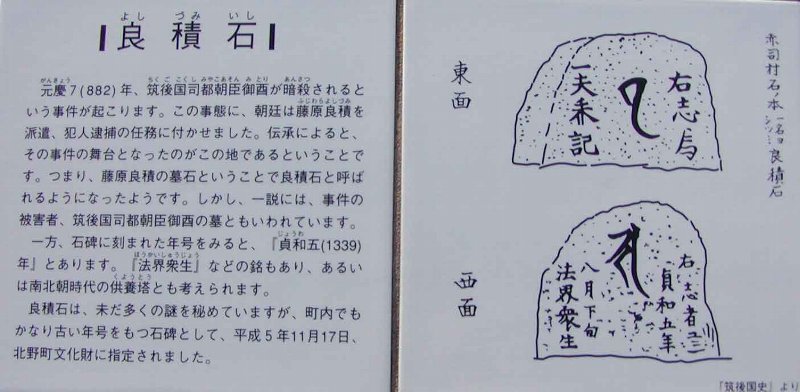 よしづみいし
良積石
元慶7(882)年、筑後国司都朝臣御酉が暗殺されると
いう事件が起こります。この事態に、朝廷は藤原良積を
派遣、犯人逮捕の任務に付かせました。伝承によると、
その事件の舞台となったのがこの地であるということで
す。つまり、藤原良積の墓石ということで良積石と呼ば
れるようになったようです。しかし、一説には、事件の
被害者、筑後国司都朝臣御酉の墓ともいわれています。
一方、石碑に刻まれた年号をみると、『貞和五(1339)
年』とあります。『法界衆生』などの銘もあり、あるい
は南北朝時代の供養塔とも考えられます。
良積石は、未だ多くの謎を秘めていますが、町内でも
かなり古い年号をもつ石碑として、平成5年11月17日、
北野町文化財に指定されました。
赤司村石本
良積石
東面
右志为
一夫乘記
西面
右志者
貞和五年
八月下旬
法界衆生
『筑後国史』より